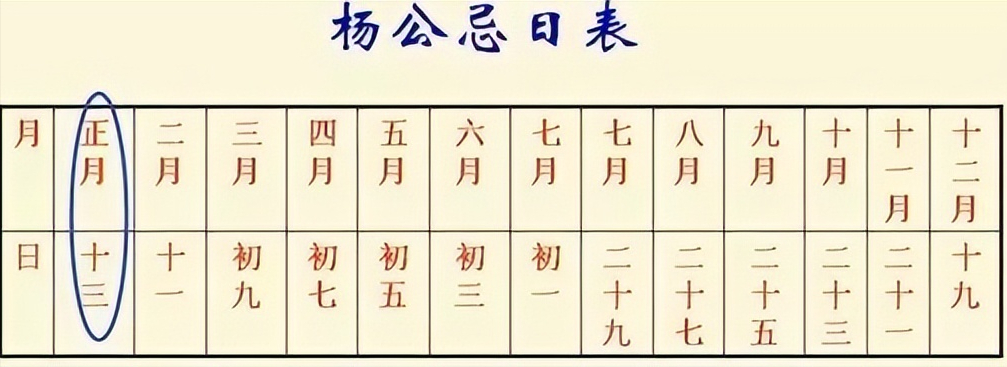 杨公忌日表
月 正月 二月 三月 四月 五月 六月 七月 七月 八月 九月 十月 十一月 十二月
日 十三 十一 初九 初七 初五 初三 初一 二十九 二十七 二十五 二十三 二十一 十九